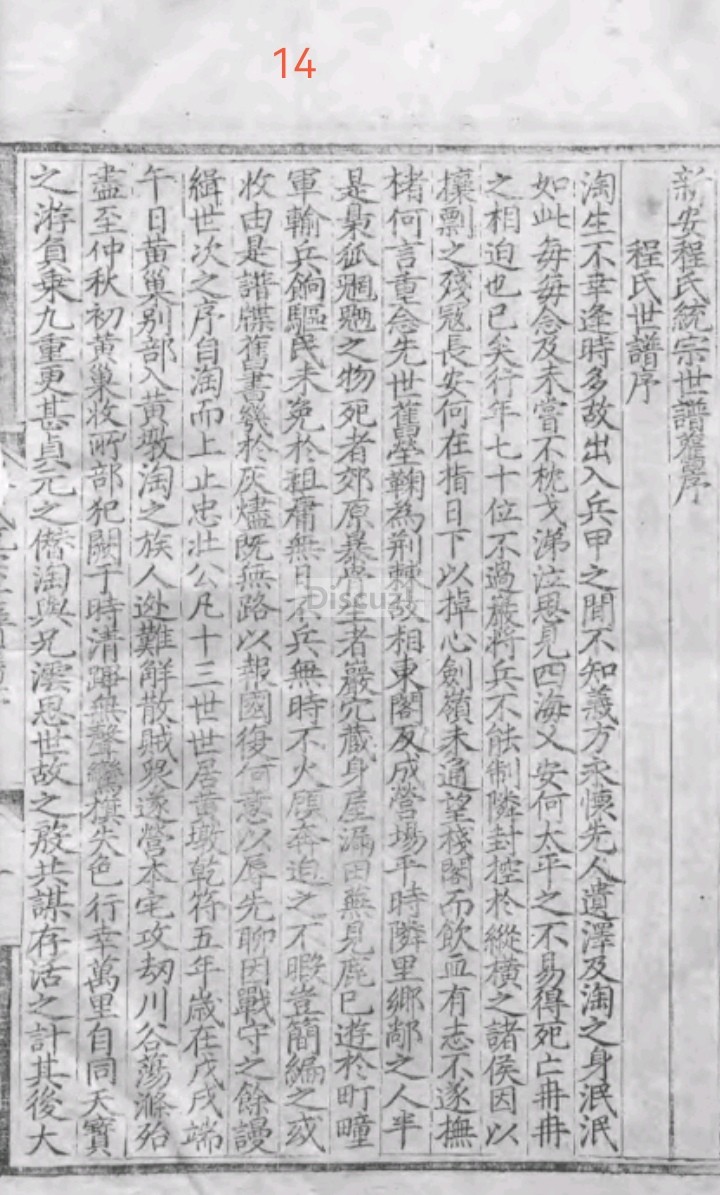 14
新安程氏統宗世譜舊序
程氏世譜序
淘生不幸逢時多故出入兵甲之間不知義方永懷先人遺澤及淘之身泯泯
如此每每念及未嘗不枕戈涕泣思見四海乂安何太平之不易得死亡冉冉
之相迫也已矣行年七十位不過巖將兵不能制隣封控於縱橫之諸侯因以
攘剽之殘寇長安何在指日下以掉心劍嶺未通望棧閣而飲血有志不遂撫
楮何言重念先世舊塋鞠為荆棘故相東閣及成營場平時隣里鄉鄰之人半
是梟狐魍魎之物死者郊原暴骨生者巖穴藏身屋漏田蕪見鹿巳遊於町畽
軍輸兵餉驅民未免於租庸無日不兵無時不火顧奔迫之不暇豈簡編之或
收由是譜牒舊書幾於灰燼既無路以報國復何意以辱先聊因戰守之餘謾
緝世次之序自淘而上止忠壯公凡十三世世居黄墩乾符五年歲在戊戌端
午日黄巢别部入黄墩淘之族人迯難觧散賊眾遂營本宅攻刼川谷蕩滌殆
盡至仲秋初黄巢收所部犯闕于時清蹕無聲鸞旗失色行幸萬里自同天寶
之游負乗九重更甚貞元之僭淘與兄澐思世故之殷共謀存活之計其後大
Discuz!